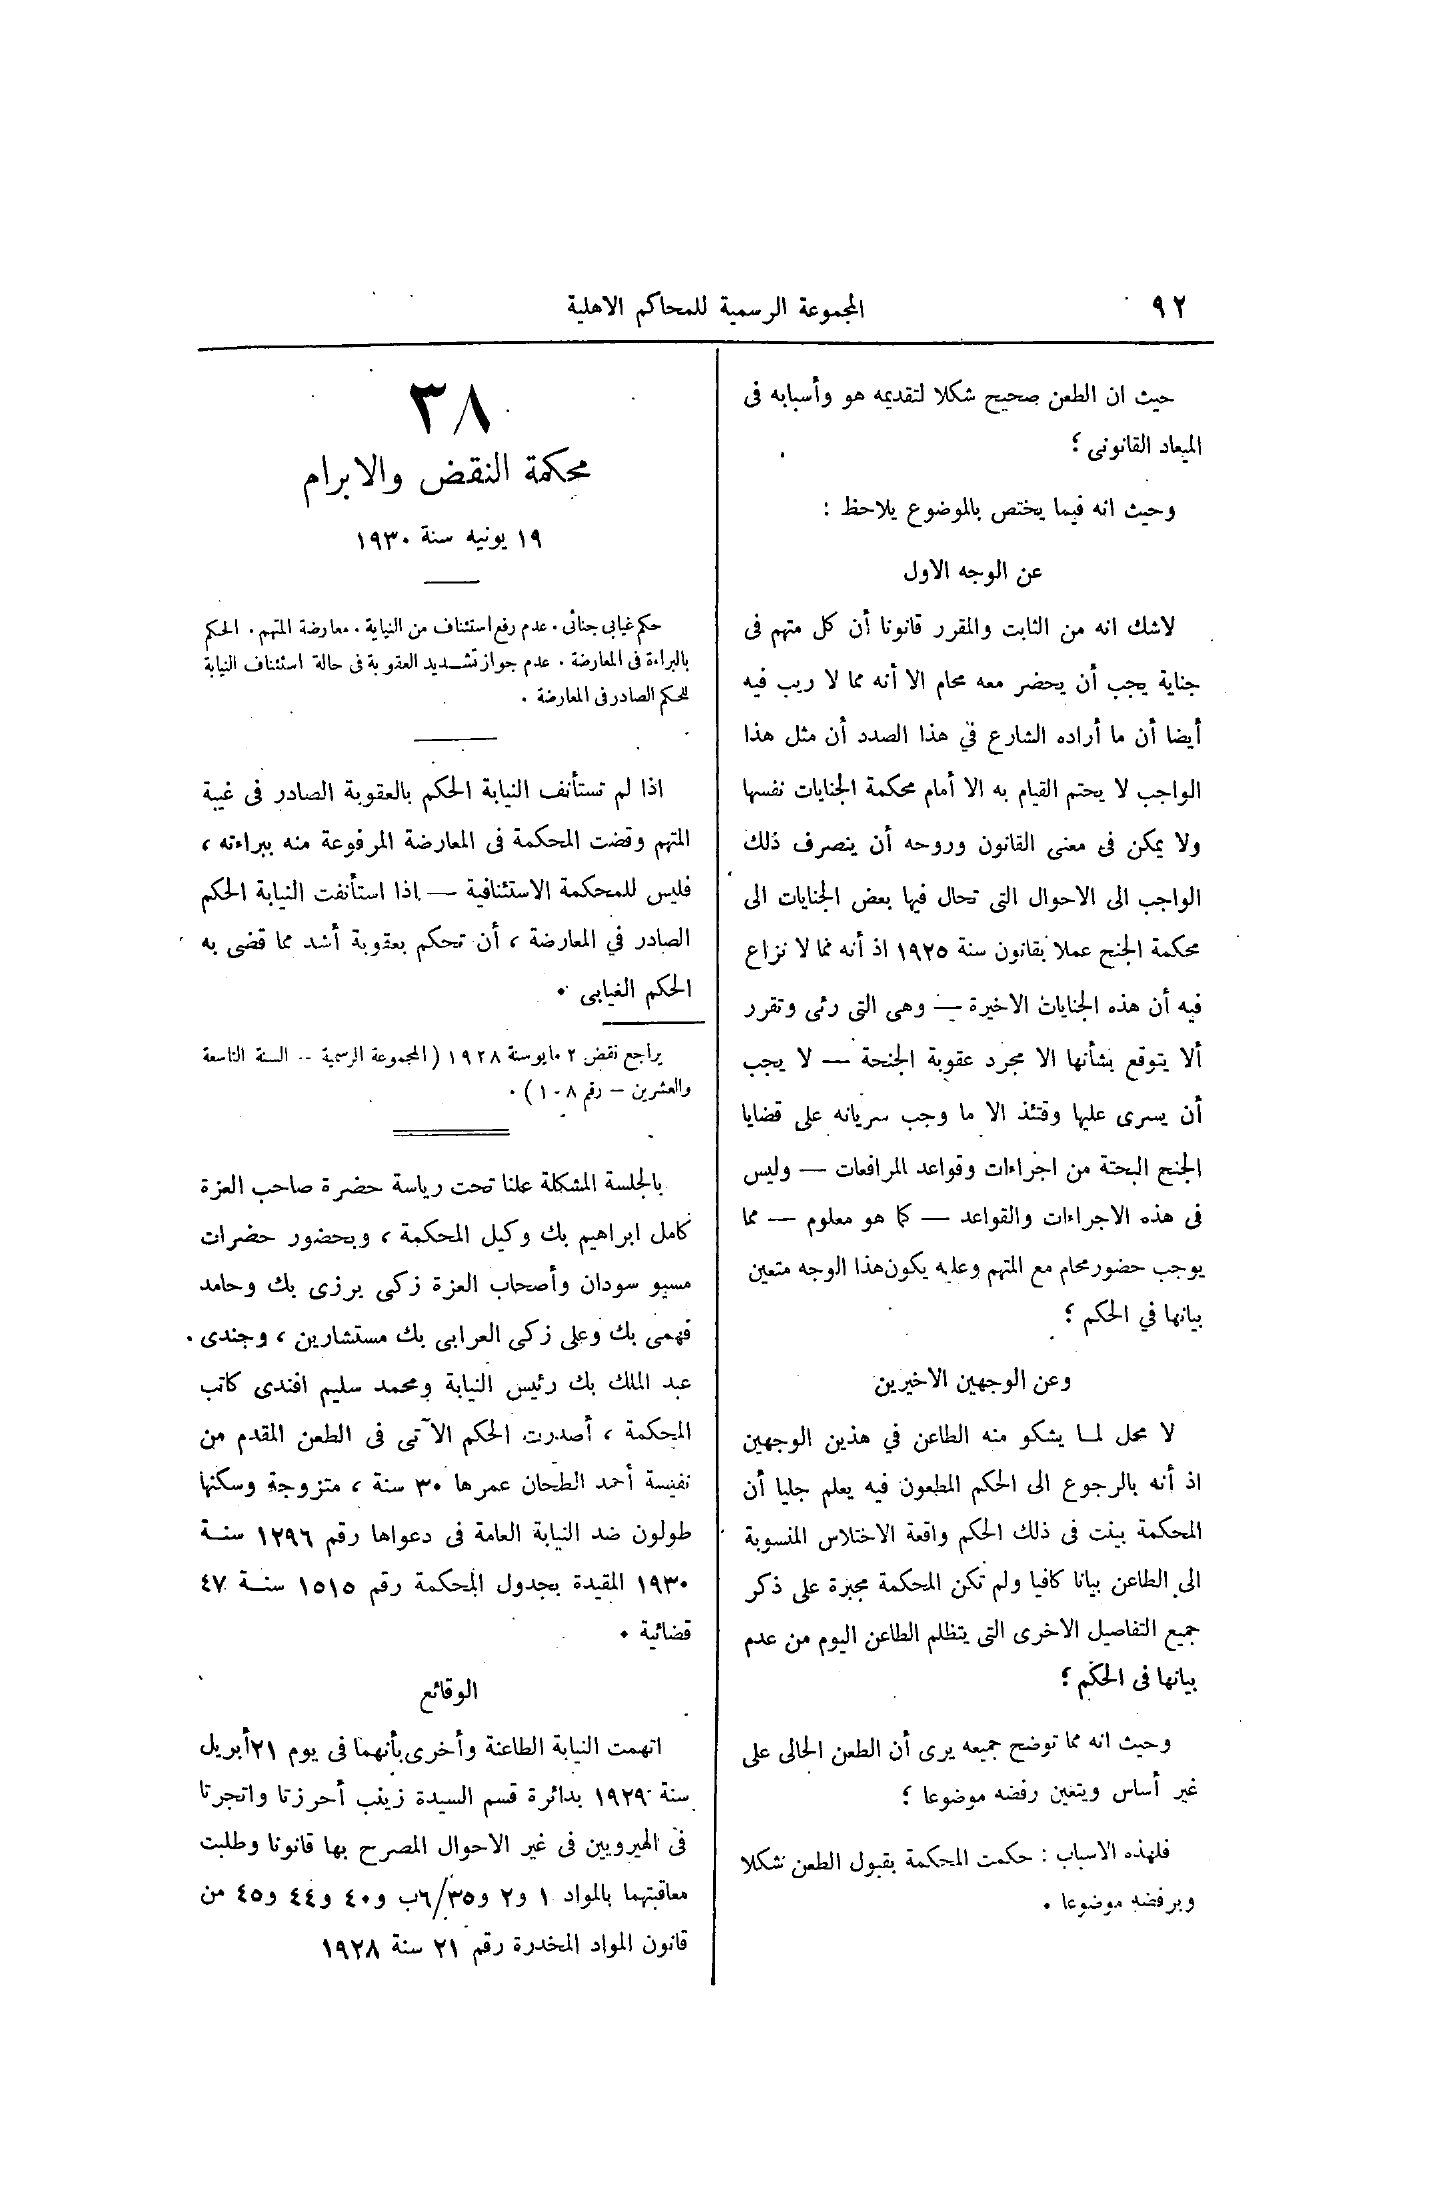 ٩٢
المجموعة الرسمية للمحاكم الاهلية
حيث ان الطعن صحيح شكلا لتقديمه هو وأسبابه فى
الميعاد القانونى ؛
وحيث انه فيما يختص بالموضوع يلاحظ :
عن الوجه الاول
لاشك انه من الثابت والمقرر قانونا أن كل متهم فى
جناية يجب أن يحضر معه محام الا أنه مما لا ريب فيه
أيضا أن ما أراده الشارع في هذا الصدد أن مثل هذا
الواجب لا يحتم القيام به الا أمام محكمة الجنايات نفسها
ولا يمكن فى معنى القانون وروحه أن ينصرف ذلك
الواجب الى الاحوال التى تحال فيها بعض الجنايات الى
محكمة الجنح عملا بقانون سنة ١٩٢٥ اذ أنه مما لا نزاع
فيه أن هذه الجنايات الاخيرة — وهى التى رئى وتقرر
ألا يتوقع بشأنها الا مجرد عقوبة الجنحة — لا يجب
أن يسرى عليها وقتئذ الا ما وجب سريانه على قضايا
الجنح البحتة من اجراءات وقواعد المرافعات — وليس
فى هذه الاجراءات والقواعد — كما هو معلوم — مما
يوجب حضور محام مع المتهم وعليه يكون هذا الوجه متعين
بيانها في الحكم ؛
وعن الوجهين الاخيرين
لا محل لما يشكو منه الطاعن في هذين الوجهين
اذ أنه بالرجوع الى الحكم المطعون فيه يعلم جليا أن
المحكمة بينت فى ذلك الحكم واقعة الاختلاس المنسوبة
الى الطاعن بيانا كافيا ولم تكن المحكمة مجبرة على ذكر
جميع التفاصيل الاخرى التى يتظلم الطاعن اليوم من عدم
بيانها فى الحكم ؛
وحيث انه مما توضح جميعه يرى أن الطعن الحالى على
غير أساس ويتعين رفضه موضوعا ؛
فلهذه الاسباب : حكمت المحكمة بقبول الطعن شكلا
وبرفضه موضوعا .
٣٨
محكمة النقض والابرام
١٩ يونيه سنة ١٩٣٠
حكم غيابى جنائى . عدم رفع استئناف من النيابة . معارضة المتهم . الحكم
بالبراءة فى المعارضة . عدم جواز تشديد العقوبة فى حالة استئناف النيابة
للحكم الصادر فى المعارضة .
اذا لم تستأنف النيابة الحكم بالعقوبة الصادر فى غيبة
المتهم وقضت المحكمة فى المعارضة المرفوعة منه ببراءته ،
فليس للمحكمة الاستئنافية — اذا استأنفت النيابة الحكم
الصادر في المعارضة ، أن تحكم بعقوبة أشد مما قضى به
الحكم الغيابى .
يراجع نقض ٢ مايو سنة ١٩٢٨ ( المجموعة الرسمية — السنة التاسعة
والعشرين — رقم ١٠٨ ) .
بالجلسة المشكلة علنا تحت رياسة حضرة صاحب العزة
كامل ابراهيم بك وكيل المحكمة ، وبحضور حضرات
مسيو سودان وأصحاب العزة زكى برزى بك وحامد
فهمى بك وعلى زكى العرابى بك مستشارين ، وجندى
عبد الملك بك رئيس النيابة ومحمد سليم افندى كاتب
المحكمة ، أصدرت الحكم الآتى فى الطعن المقدم من
نفيسة أحمد الطحان عمرها ٣٠ سنة ، متزوجة وسكنها
طولون ضد النيابة العامة فى دعواها رقم ١٢٩٦ سنة
١٩٣٠ المقيدة بجدول المحكمة رقم ١٥١٥ سنة ٤٧
قضائية .
الوقائع
اتهمت النيابة الطاعنة وأخرى بأنهما فى يوم ٢١ أبريل
سنة ١٩٢٩ بدائرة قسم السيدة زينب أحرزتا واتجرتا
فى الهيرويين فى غير الاحوال المصرح بها قانونا وطلبت
معاقبتهما بالمواد ١ و٢ و٣٥/٦ب و٤٠ و٤٤ و٤٥ من
قانون المواد المخدرة رقم ٢١ سنة ١٩٢٨